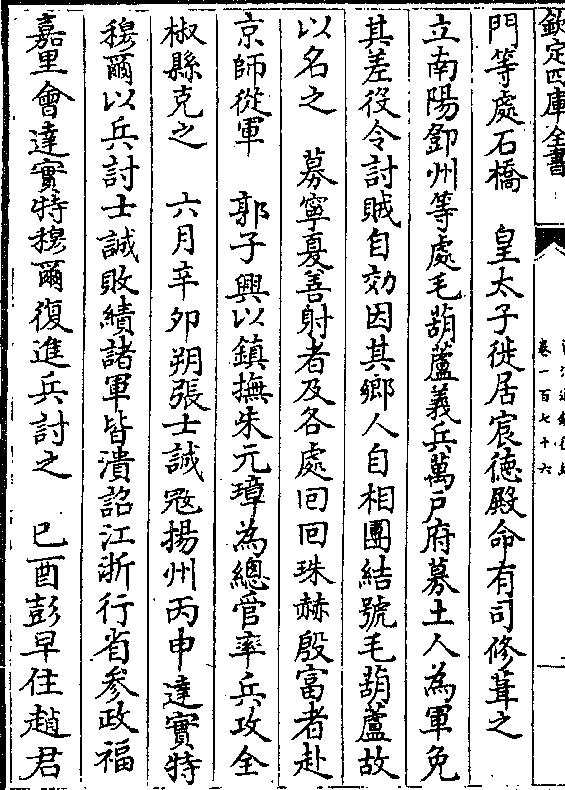 欽定四庫全書
卷一百七十六
門等處石橋　皇太子徙居宸德殿命有司修葺之
立南陽鄧州等處毛葫蘆義兵萬戶府募土人為軍免
其差役令討賊自効因其鄉人自相團結號毛葫蘆故
以名之　募寧夏善射者及各處回回珠赫殷富者赴
京師從軍　郭子興以鎮撫朱元璋為總管率兵攻全
椒縣克之　六月辛卯朔張士誠宼揚州丙申達實特
穆爾以兵討士誠敗績諸軍皆潰詔江浙行省參政福
嘉里會達實特穆爾復進兵討之　己酉彭早住趙君